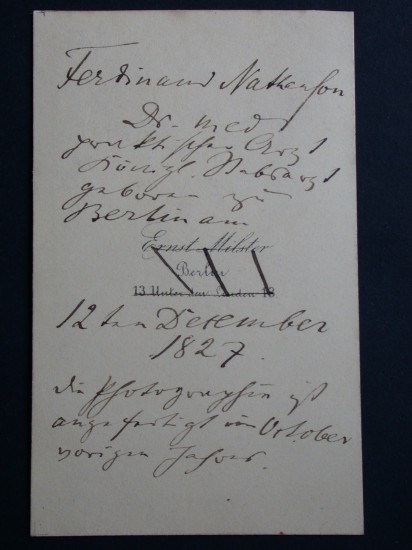 Ferdinand Nathanson
Dr. med.
praktischer Arzt
Königl. Stabsarzt
geboren zu
Berlin am
Ernst Milster
Berlin
13 Unter den Linden 13
12ten Dezember
1827.
die Photographie ist
angefertigt im October
vorigen Jahres.